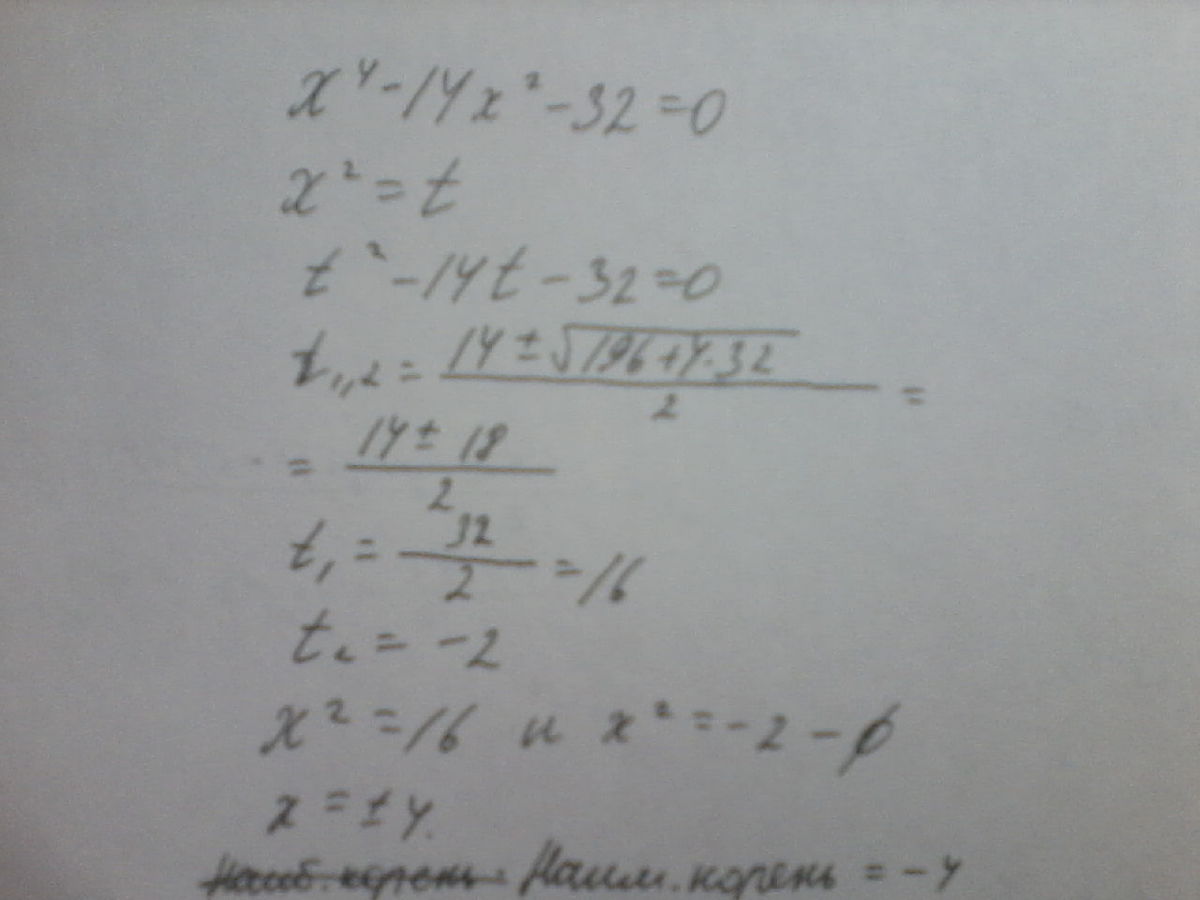 x⁴-14x²-32=0
x²=t
t²-14t-32=0
t₁,₂ = (14±√(196+4·32))/2 =
= (14±18)/2
t₁ = 32/2 = 16
t₂ = -2
x²=16 и x²=-2-∅
x=±4.
Наиб. корень. Наим. корень = -4